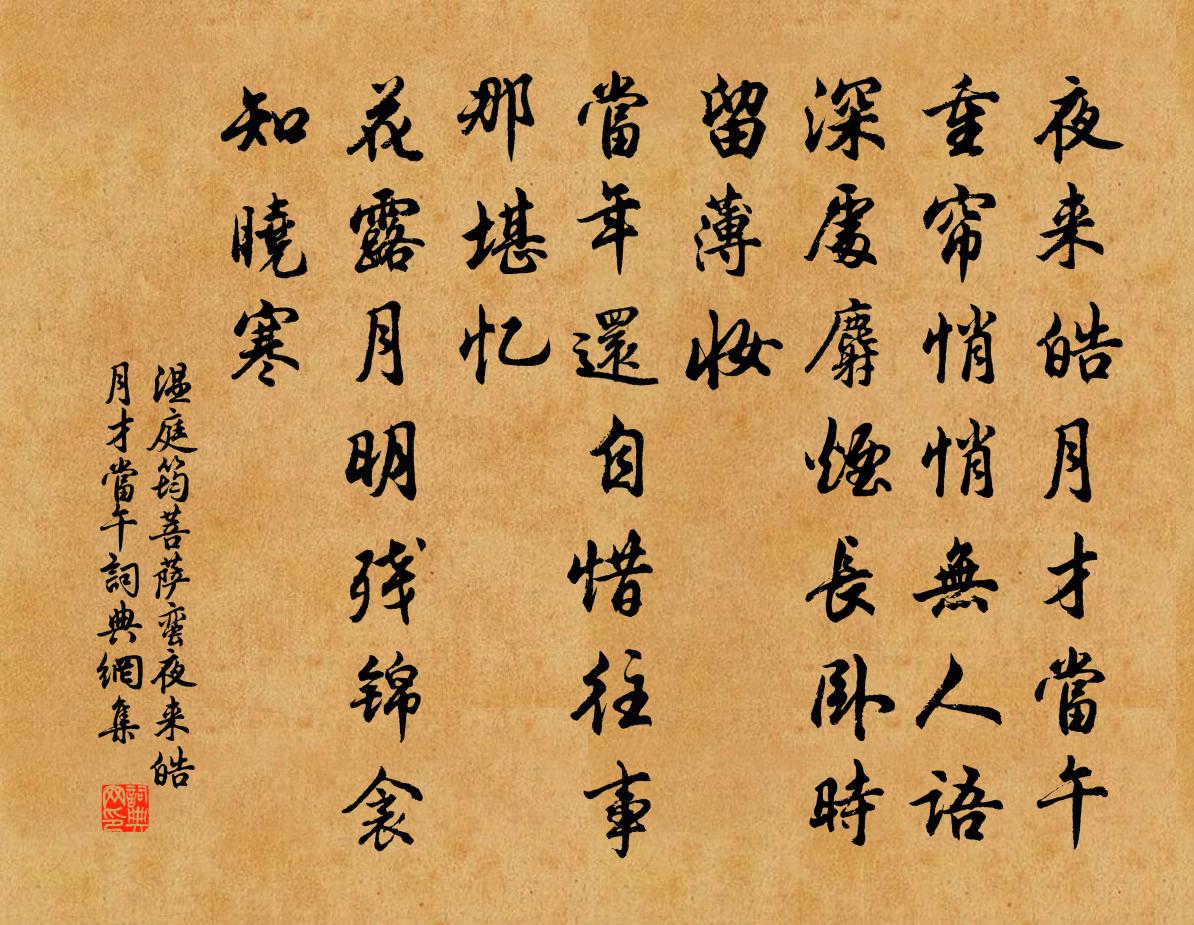 夜来皓月才當午
重帘悄悄無人語
深處麝煙長卧時
留薄妝
當年還自惜往事
那堪忆
花露月明残錦衾
知曉寒
温庭筠菩萨蛮夜来皓
月才當午詞典網集
詞典
网印